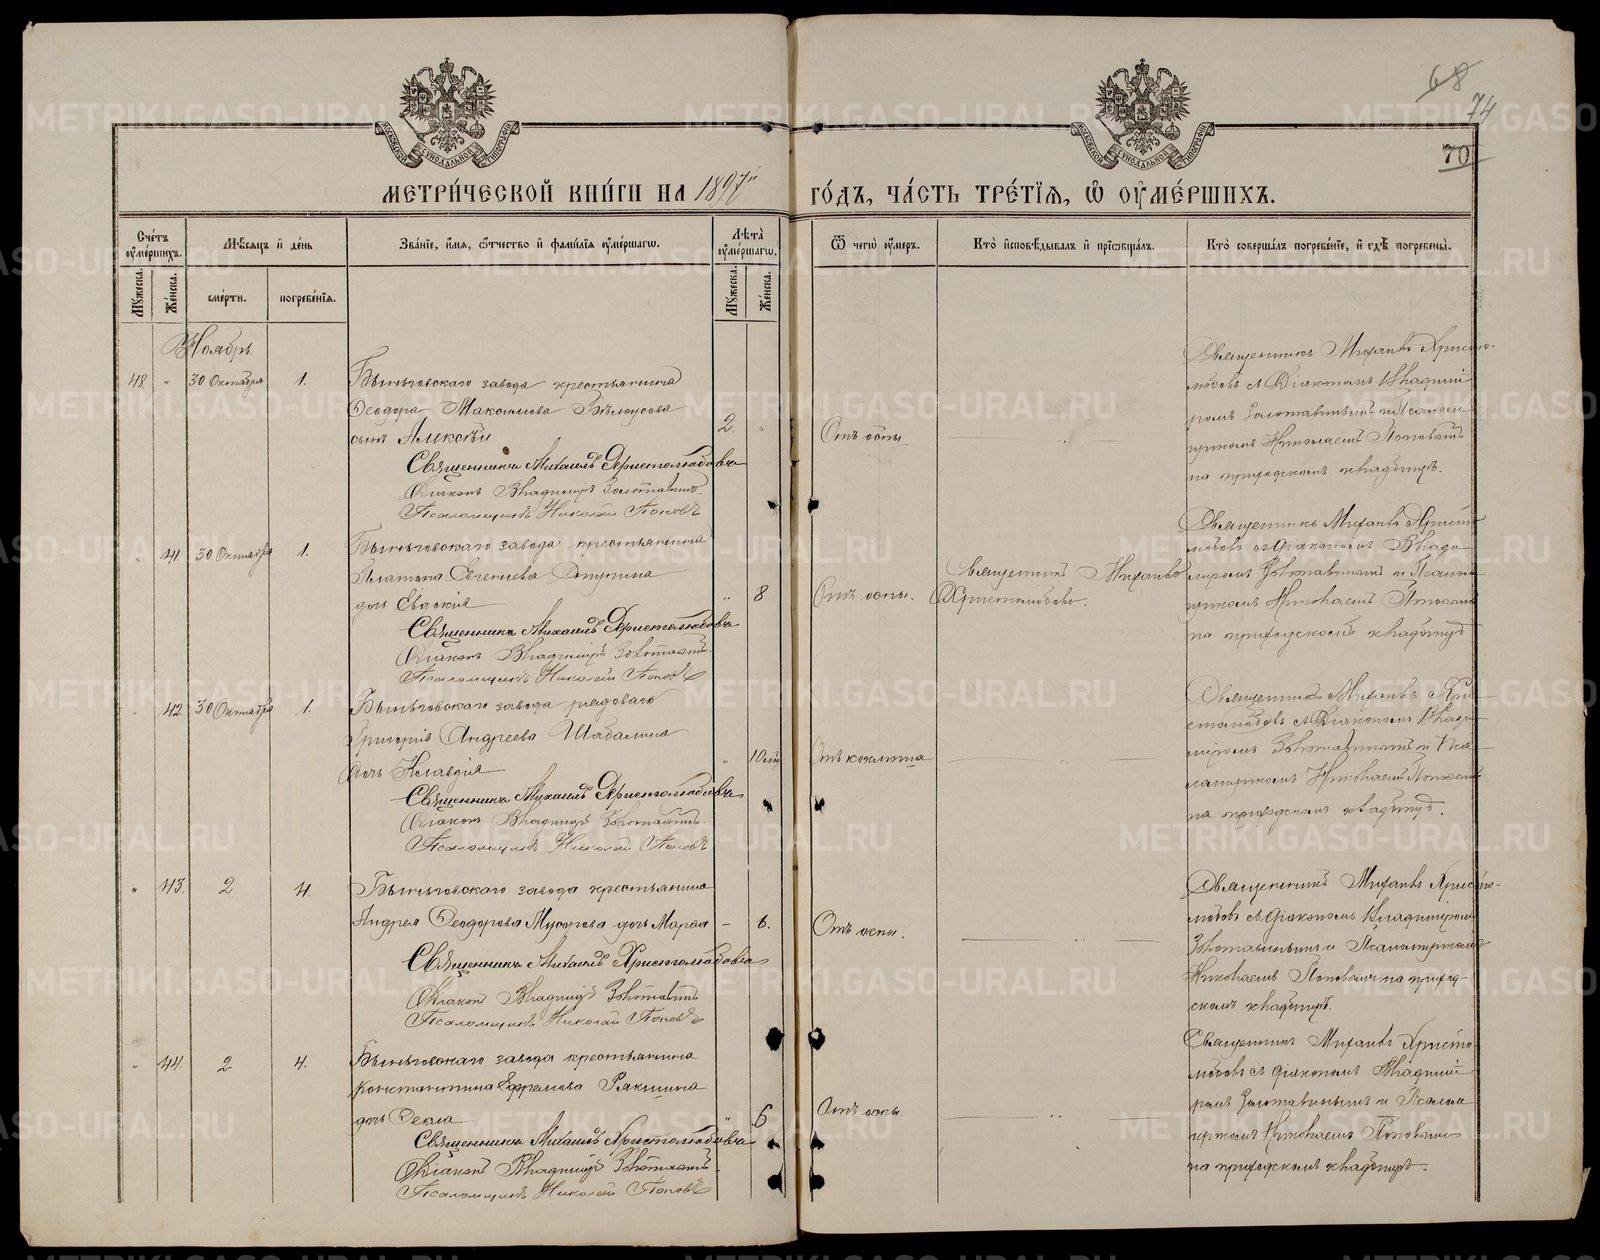 68
74
70
МЕТРИ́ЧЕСКОЙ КНИ́ГИ НА 1897й ГО́ДЪ, ЧА́СТЬ ТРЕ́ТІѦ, Ѽ ОУ҆МЕ́РШИХЪ.
Сче́тъ оу҆ме́ршихъ.
Мꙋ́жеска.
Же́нска.
Мѣ́сѧцъ и҆ де́нь
сме́рти.
погребе́нїѧ.
Зва́нїе, и҆́мѧ, ѻ҆́тчество и҆ фамі́лїѧ оу҆ме́ршагѡ.
Лѣ́та оу҆ме́ршагѡ.
Мꙋ́жеска.
Же́нска.
Ѿ чегѡ̀ оу҆́меръ.
Кто̀ и҆сповѣ́дывалъ и҆ прїѡбща́лъ.
Кто̀ соверша́лъ погребе́нїе, и҆ гдѣ̀ погребены̀.
Ноябрь.
48 " 30 Октября 1.
Быньговскаго завода крестьянина
Ѳеодора Максимова Бѣлоусова
сынъ Алексѣй
2. "
Отъ оспы
Священникъ Михаилъ Христолюбовъ
Діаконъ Владиміръ Золотавинъ.
Псаломщикъ Николай Поповъ
Священникъ Михаилъ Христо-
любовъ съ Діакономъ Владимі
ромъ Золотавинымъ и Псалом
щикомъ Николаемъ Поповымъ
на приходскомъ кладбищѣ.
" 41. 30 Октября 1.
Быньговскаго завода крестьянина
Платона Евгениева
дочь Евдокія
" 8
Отъ оспы.
Священникъ Михаилъ
Христолюбовъ.
Священникъ Михаилъ Христолюбовъ
Діаконъ Владиміръ Золотавинъ.
Псаломщикъ Николай Поповъ
Священникъ Михаилъ Христо
любовъ съ діакономъ Влади
міромъ Золотавинымъ и Псалом
щикомъ Николаемъ Поповымъ
на приходскомъ кладбищѣ
" 42. 30 Октября 1.
Быньговскаго завода рядоваго
Григорія Андреева Шабалина
дочь Клавдія
" 10
Отъ коклюша
Священникъ Михаилъ Христолюбовъ
Діаконъ Владиміръ Золотавинъ.
Псаломщикъ Николай Поповъ
Священникъ Михаилъ Хри
столюбовъ съ Діакономъ Влади
міромъ Золотавинымъ и Пса
ломщикомъ Николаемъ Поповымъ
на приходскомъ кладбищѣ.
" 43. 2 4.
Быньговскаго завода крестьянина
Андрея Ѳеодорова дочь Марія
– 6.
Отъ оспы.
Священникъ Михаилъ Христолюбовъ
Діаконъ Владиміръ Золотавинъ
Псаломщикъ Николай Поповъ
Священникъ Михаилъ Христо-
любовъ съ діакономъ Владиміромъ
Золотавинымъ и Псаломщикомъ
Николаемъ Поповымъ на приход-
скомъ кладбищѣ.
" 44. 2 4.
Быньговскаго завода крестьянина
Константина Ефремова Рякшина
дочь Ѳекла
" 6
Отъ оспы.
Священникъ Михаилъ Христолюбовъ
Діаконъ Владиміръ Золотавинъ.
Псаломщикъ Николай Поповъ
Священникъ Михаилъ Христо
любовъ съ діакономъ Владимі
ромъ Золотавинымъ и Псалом
щикомъ Николаемъ Поповымъ
на приходскомъ кладбищѣ.
METRIKI.GASO-URAL.RU